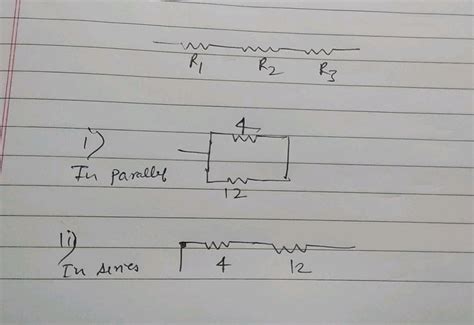 R1 R2 R3
i) 4
In parallel
12
ii)
In series 4 12